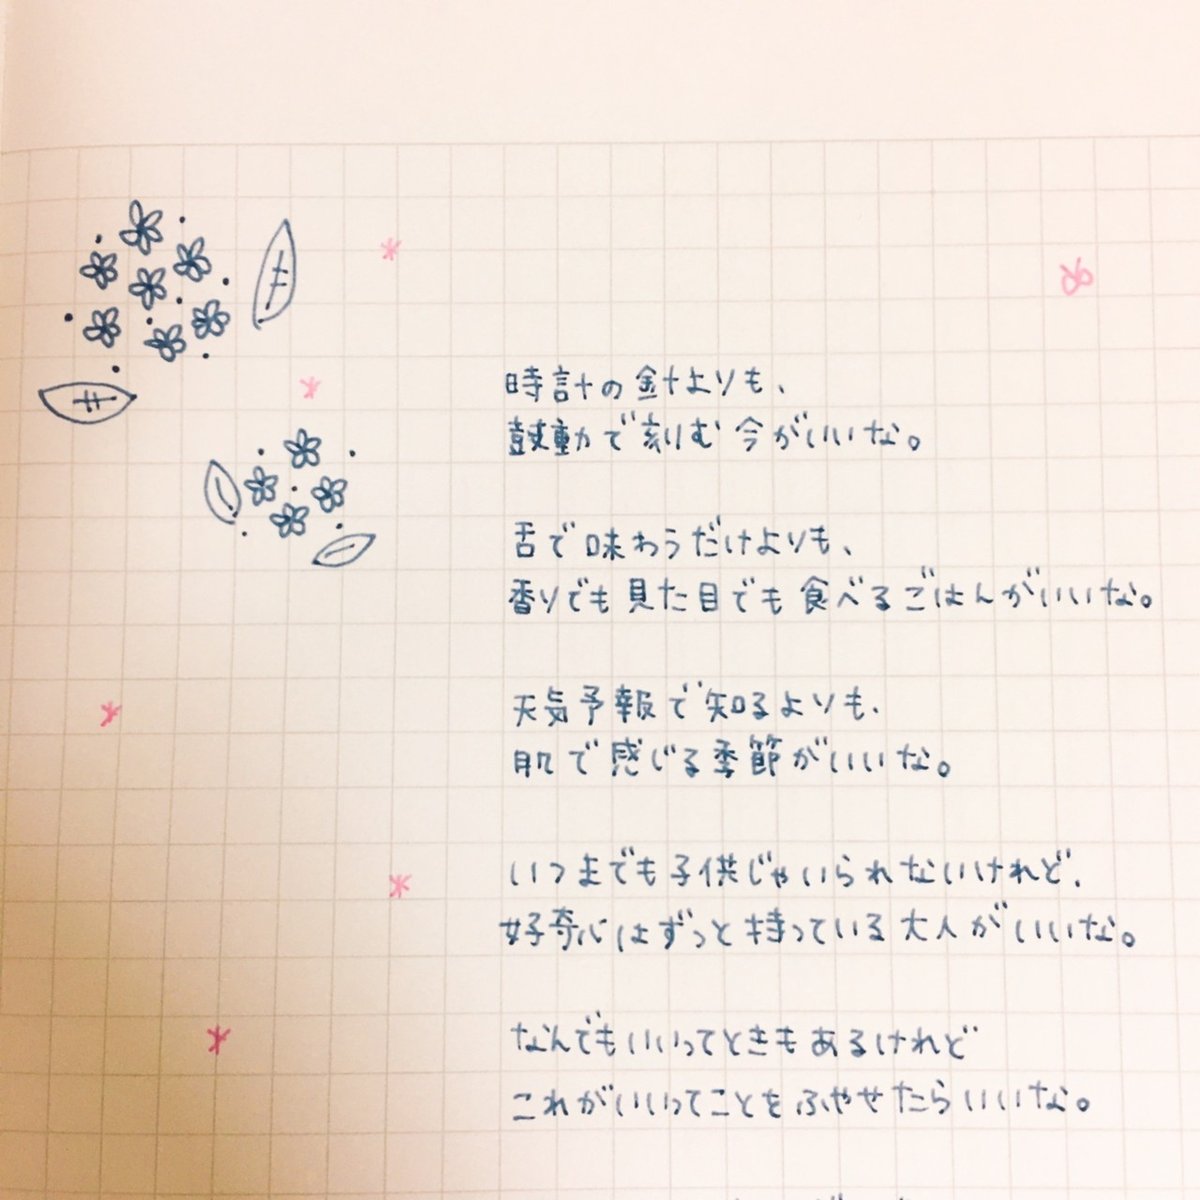 時計の針よりも、
鼓動で刻む今がいいな。
舌で味わうだけよりも、
香りでも見た目でも食べるごはんがいいな。
天気予報で知るよりも、
肌で感じる季節がいいな。
いつまでも子供じゃいられないけれど、
好奇心はずっと持っている大人がいいな。
なんでもいいってときもあるけれど
これがいいってことをふやせたらいいな。